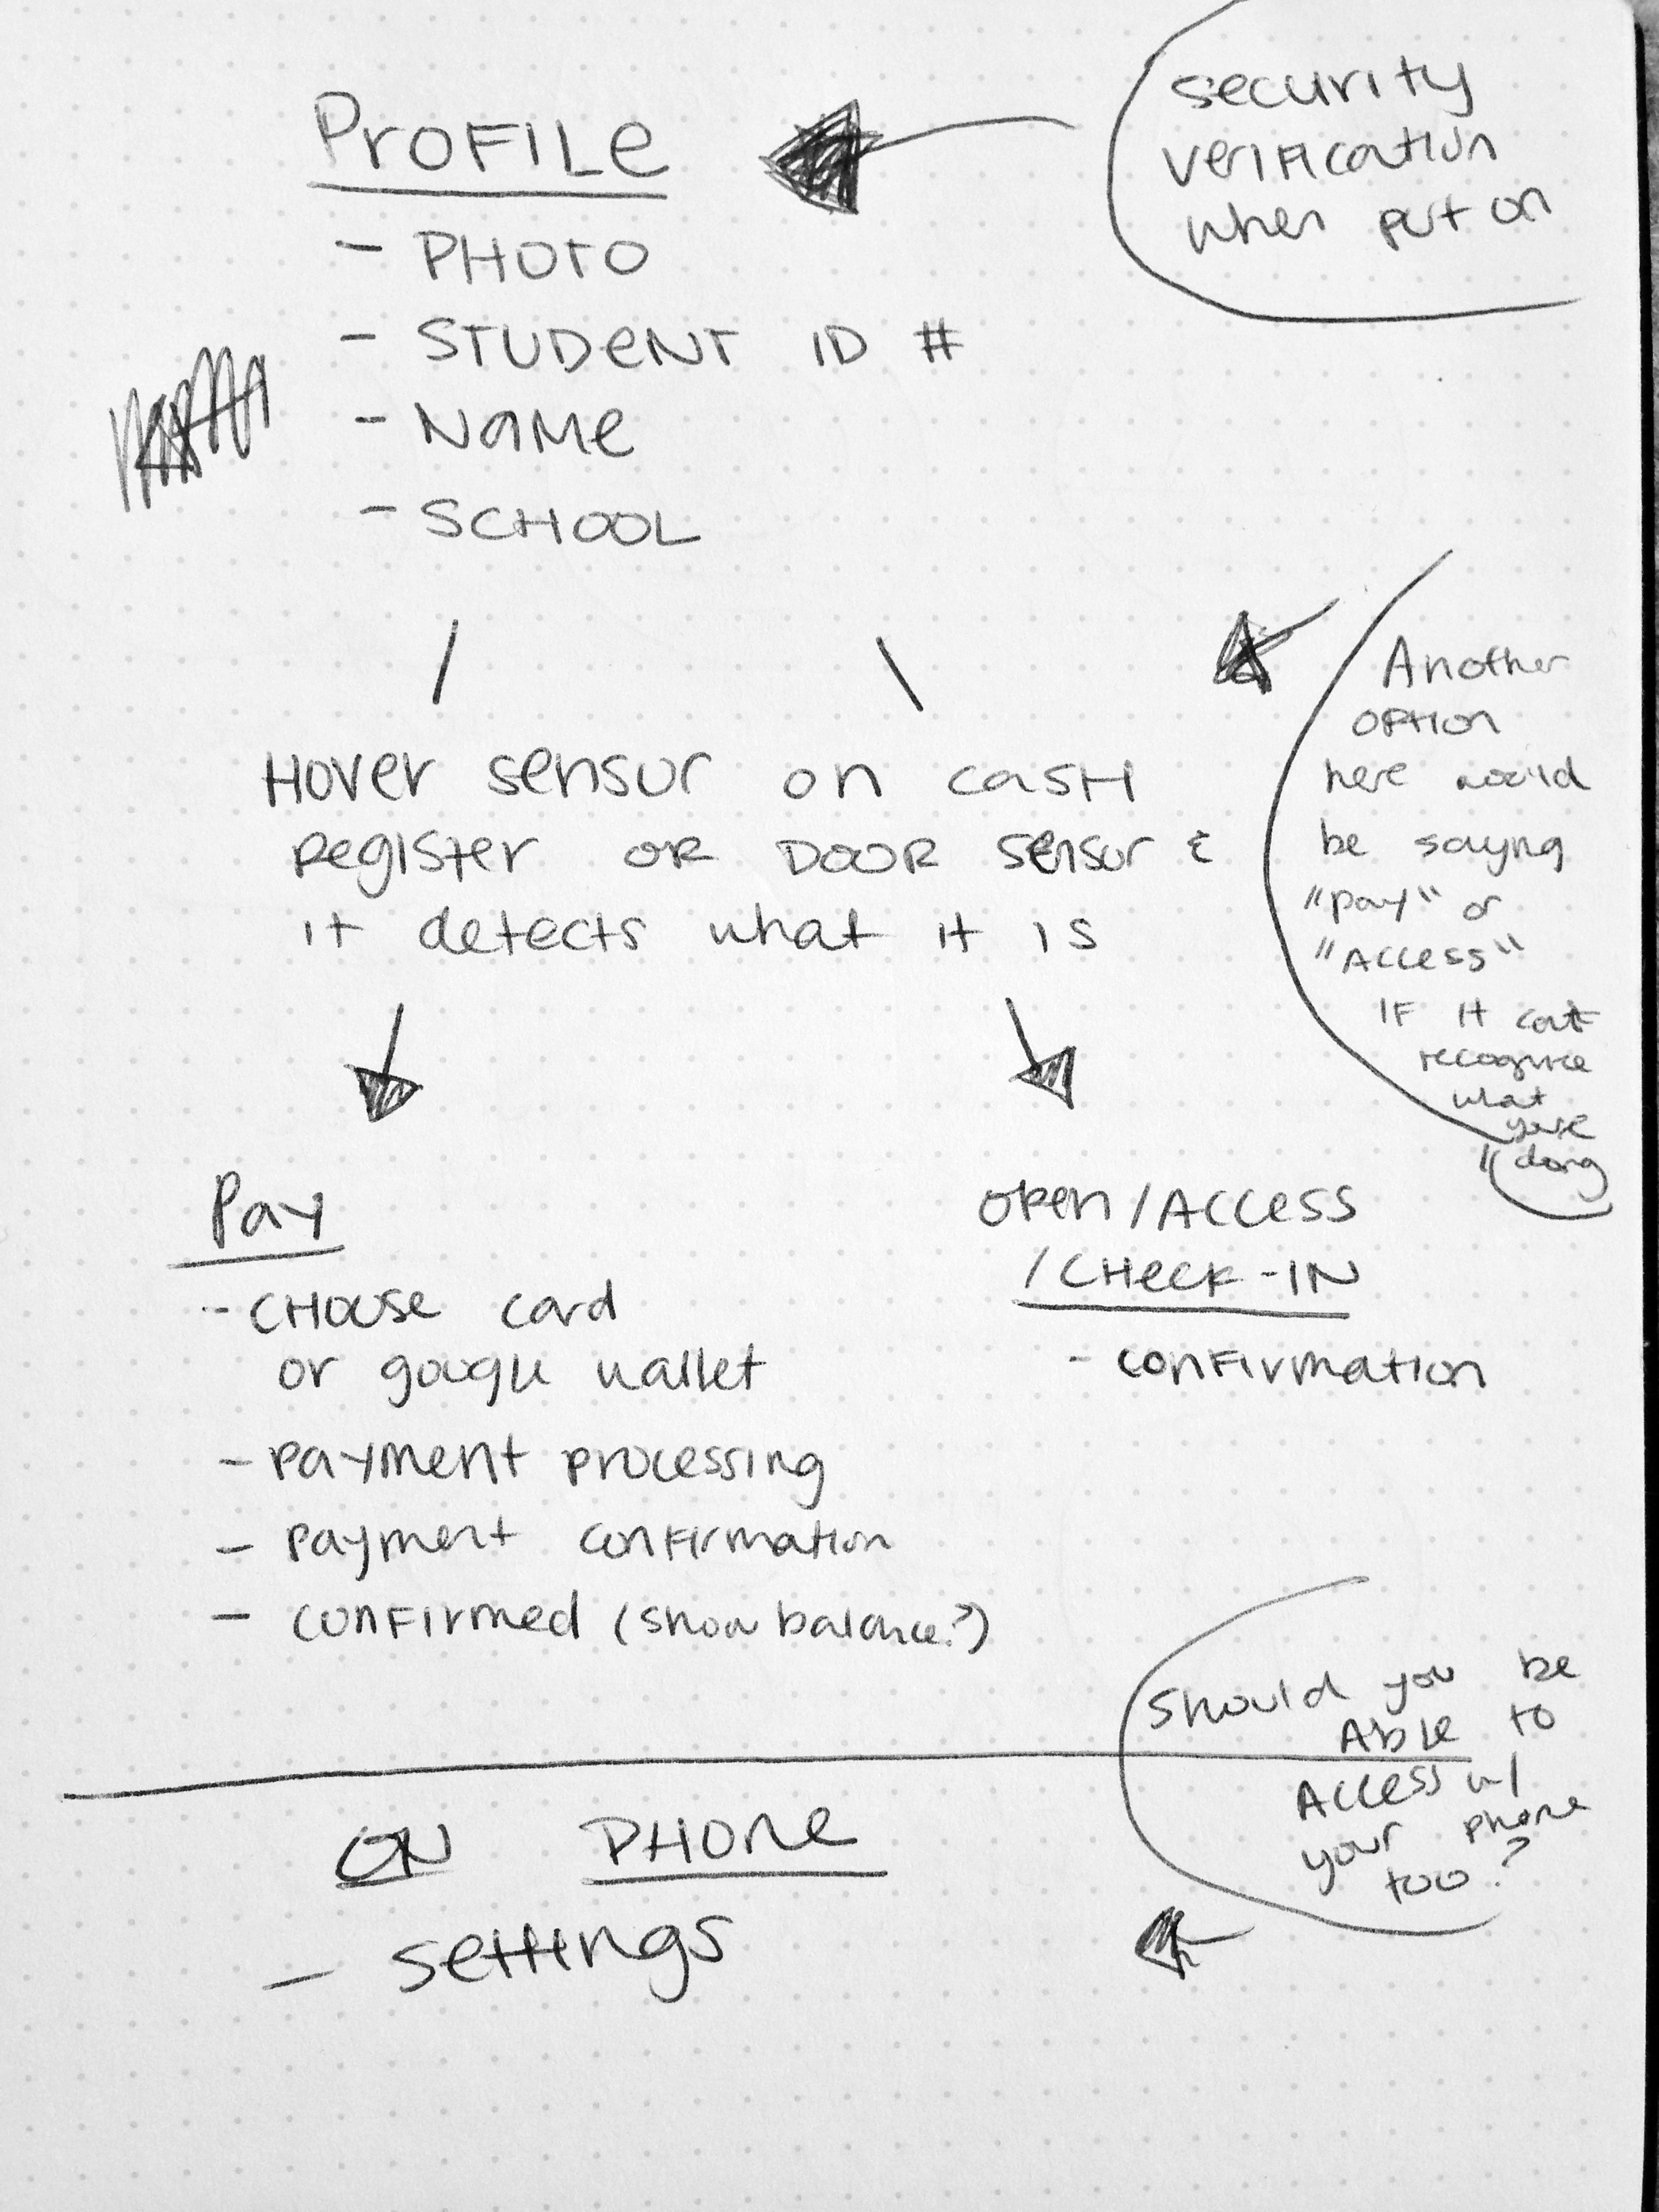 PROFILE
- PHOTO
- STUDENT ID #
- NAME
- SCHOOL
security
verification
when put on
Hover sensor on cash
register or DOOR sensor &
it detects what it is
Another
option
here would
be saying
"pay" or
"Access"
IF it cant
recognize
what
you're
doing
Pay
- CHOOSE card
or google wallet
- payment processing
- payment confirmation
- confirmed (show balance?)
open/ACCESS
/CHECK-IN
- confirmation
Should you be
Able to
Access w/
your phone
too?
ON PHONE
- settings